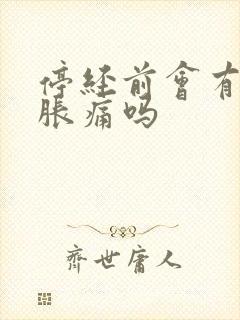 停经前會有
脹痛吗
齊世庸人